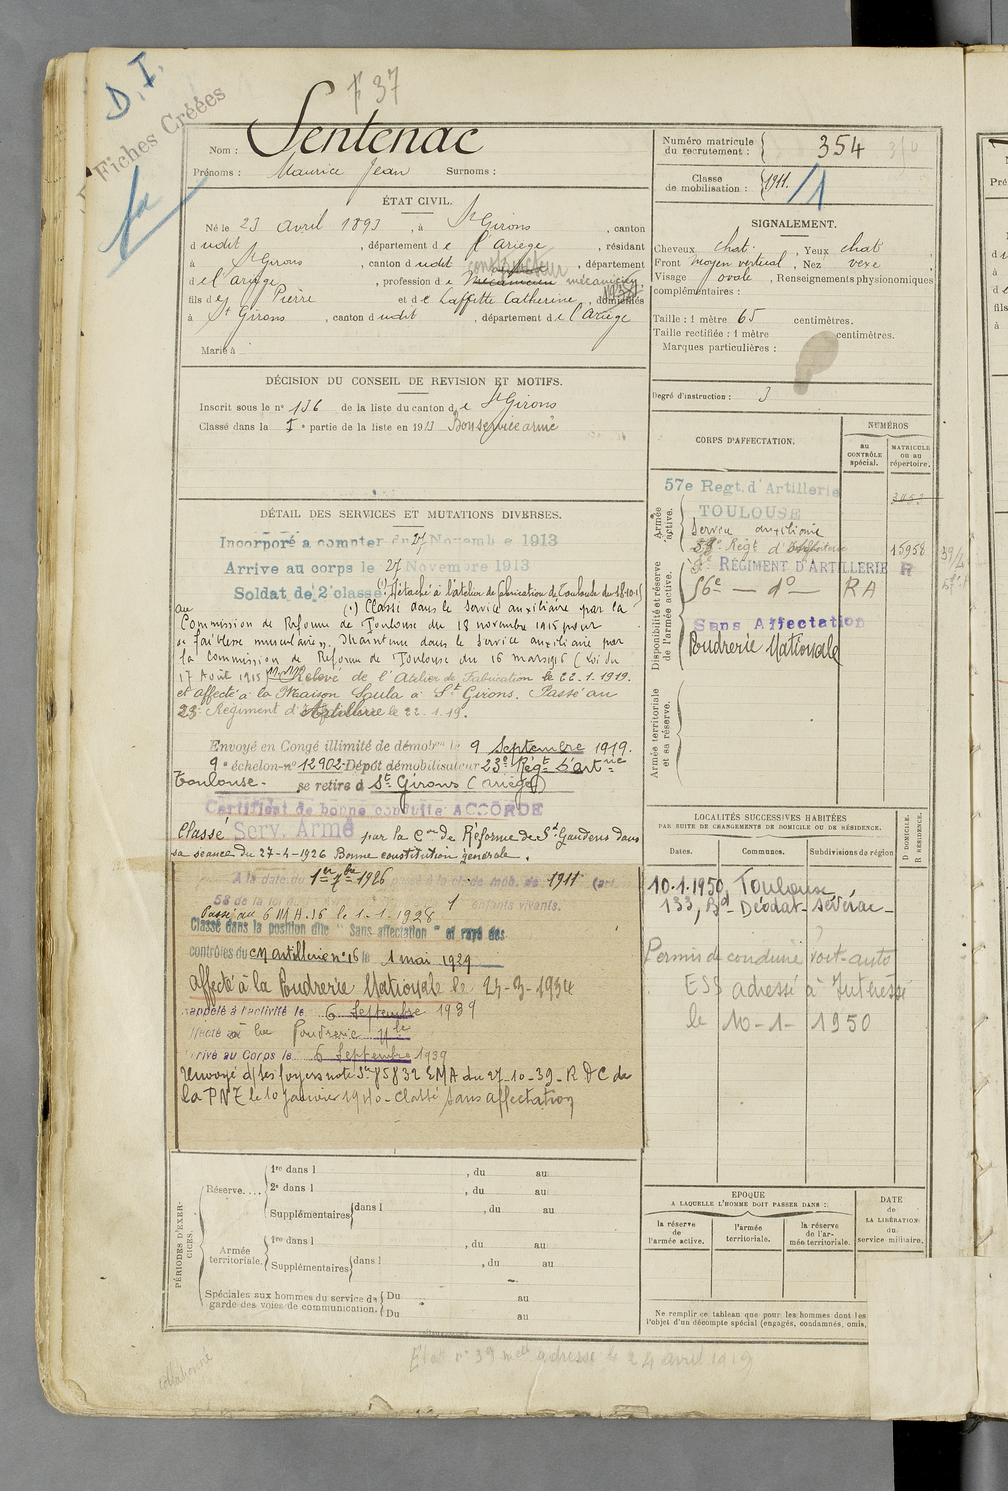 D.I.
Fiches Créées
F 37
Nom : Sentenac
Prénoms : Maurice Jean Surnoms :
Numéro matricule du recrutement : 354
Classe de mobilisation : 1911. /1
ÉTAT CIVIL.
Né le 23 avril 1893, à St Girons, canton
dudit, département de l'Ariège, résidant
à St Girons, canton dudit, département
de l'Ariège, profession de mécanicien
constructeur
fils de Pierre et de Laffitte Catherine, domiciliés
à St Girons, canton dudit, département de l'Ariège
Marié à
SIGNALEMENT.
Cheveux chat. , Yeux chat
Front moyen vertical, Nez vexe
Visage ovale, Renseignements physionomiques
complémentaires :
Taille : 1 mètre 65 centimètres.
Taille rectifiée : 1 mètre centimètres.
Marques particulières :
Degré d'instruction : 3
DÉCISION DU CONSEIL DE REVISION ET MOTIFS.
Inscrit sous le n° 136 de la liste du canton de St Girons
Classé dans la 1e partie de la liste en 1913 Bon service armé
DÉTAIL DES SERVICES ET MUTATIONS DIVERSES.
Incorporé a compter du 27 Novembre 1913
Arrive au corps le 27 Novembre 1913
Soldat de 2e classe (1) Détaché à l'atelier de fabrication de Toulouse du 18-10-15
au (1) Classé dans le service auxiliaire par la
Commission de Réforme de Toulouse du 18 novembre 1915 pour
"faiblesse musculaire". Maintenu dans le service auxiliaire par
la Commission de Réforme de Toulouse du 16 mars 1916 (Loi du
17 Août 1915) Relevé de l'Atelier de Fabrication le 22.1.1919.
et affecté à la Maison Soula à St Girons. Passé au
23e Régiment d'Artillerie le 22.1.19.
Envoyé en Congé illimité de démobon le 9 Septembre 1919.
9e échelon-n° 12902-Dépôt démobilisateur 23e Régt d'artrie
Toulouse- se retire à St Girons (Ariège)
Certificat de bonne conduite ACCORDÉ
Classé Serv. Armé par la Con de Réforme de St Gaudens dans
sa séance du 27-4-1926 Bonne constitution générale.
A la date du 1er 7bre 1926 passé à la cl. de mob. de 1911 (art.
58 de la loi du 1 enfants vivants.
Passé au C M A. 16 le 1-1-1928
Classé dans la position dite "Sans affectation" et rayé des
contrôles du CM artillerie n° 16 le 1 mai 1929
affecté à la Poudrerie Nationale le 24-3-1934
appelé à l'activité le 6 Septembre 1939
ffecté à la Poudrerie Nle
rivé au Corps le 6 Septembre 1939
Renvoyé d/ses foyers note Sn 85832 EMA du 27-10-39-R D C de
la PNT le 10 Janvier 1940-Classé sans affectation
CORPS D'AFFECTATION.
NUMÉROS
au CONTRÔLE spécial.
MATRICULE ou au répertoire.
Armée active.
57e Regt. d'Artillerie
TOULOUSE
Service auxiliaire
Régt d'Artillerie 15958
Disponibilité et réserve de l'armée active.
RÉGIMENT D'ARTILLERIE R
56e — do — RA
Sans Affectation
Poudrerie Nationale
Armée territoriale et sa réserve.
LOCALITÉS SUCCESSIVES HABITÉES
PAR SUITE DE CHANGEMENTS DE DOMICILE OU DE RÉSIDENCE.
D DOMICILE. R RÉSIDENCE.
Dates. Communes. Subdivisions de région
10.1.1950, Toulouse
133, Bd- Déodat- Séverac-
Permis de conduire voit-auto
ESS adressé à Intéressé
le 10-1-1950
PÉRIODES D'EXERCICES.
Réserve....
1re dans l , du au
2e dans l , du au
Supplémentaires dans l , du au
Armée territoriale.
1re dans l , du au
Supplémentaires dans l , du au
Spéciales aux hommes du service de garde des voies de communication.
Du au
Du au
EPOQUE
A LAQUELLE L'HOMME DOIT PASSER DANS :
la réserve de l'armée active.
l'armée territoriale.
la réserve de l'armée territoriale.
DATE de LA LIBÉRATION du service militaire.
Ne remplir ce tableau que pour les hommes dont les
l'objet d'un décompte spécial (engagés, condamnés, omis,
Etat n° 39 adressé le 24 avril 1919
collationné